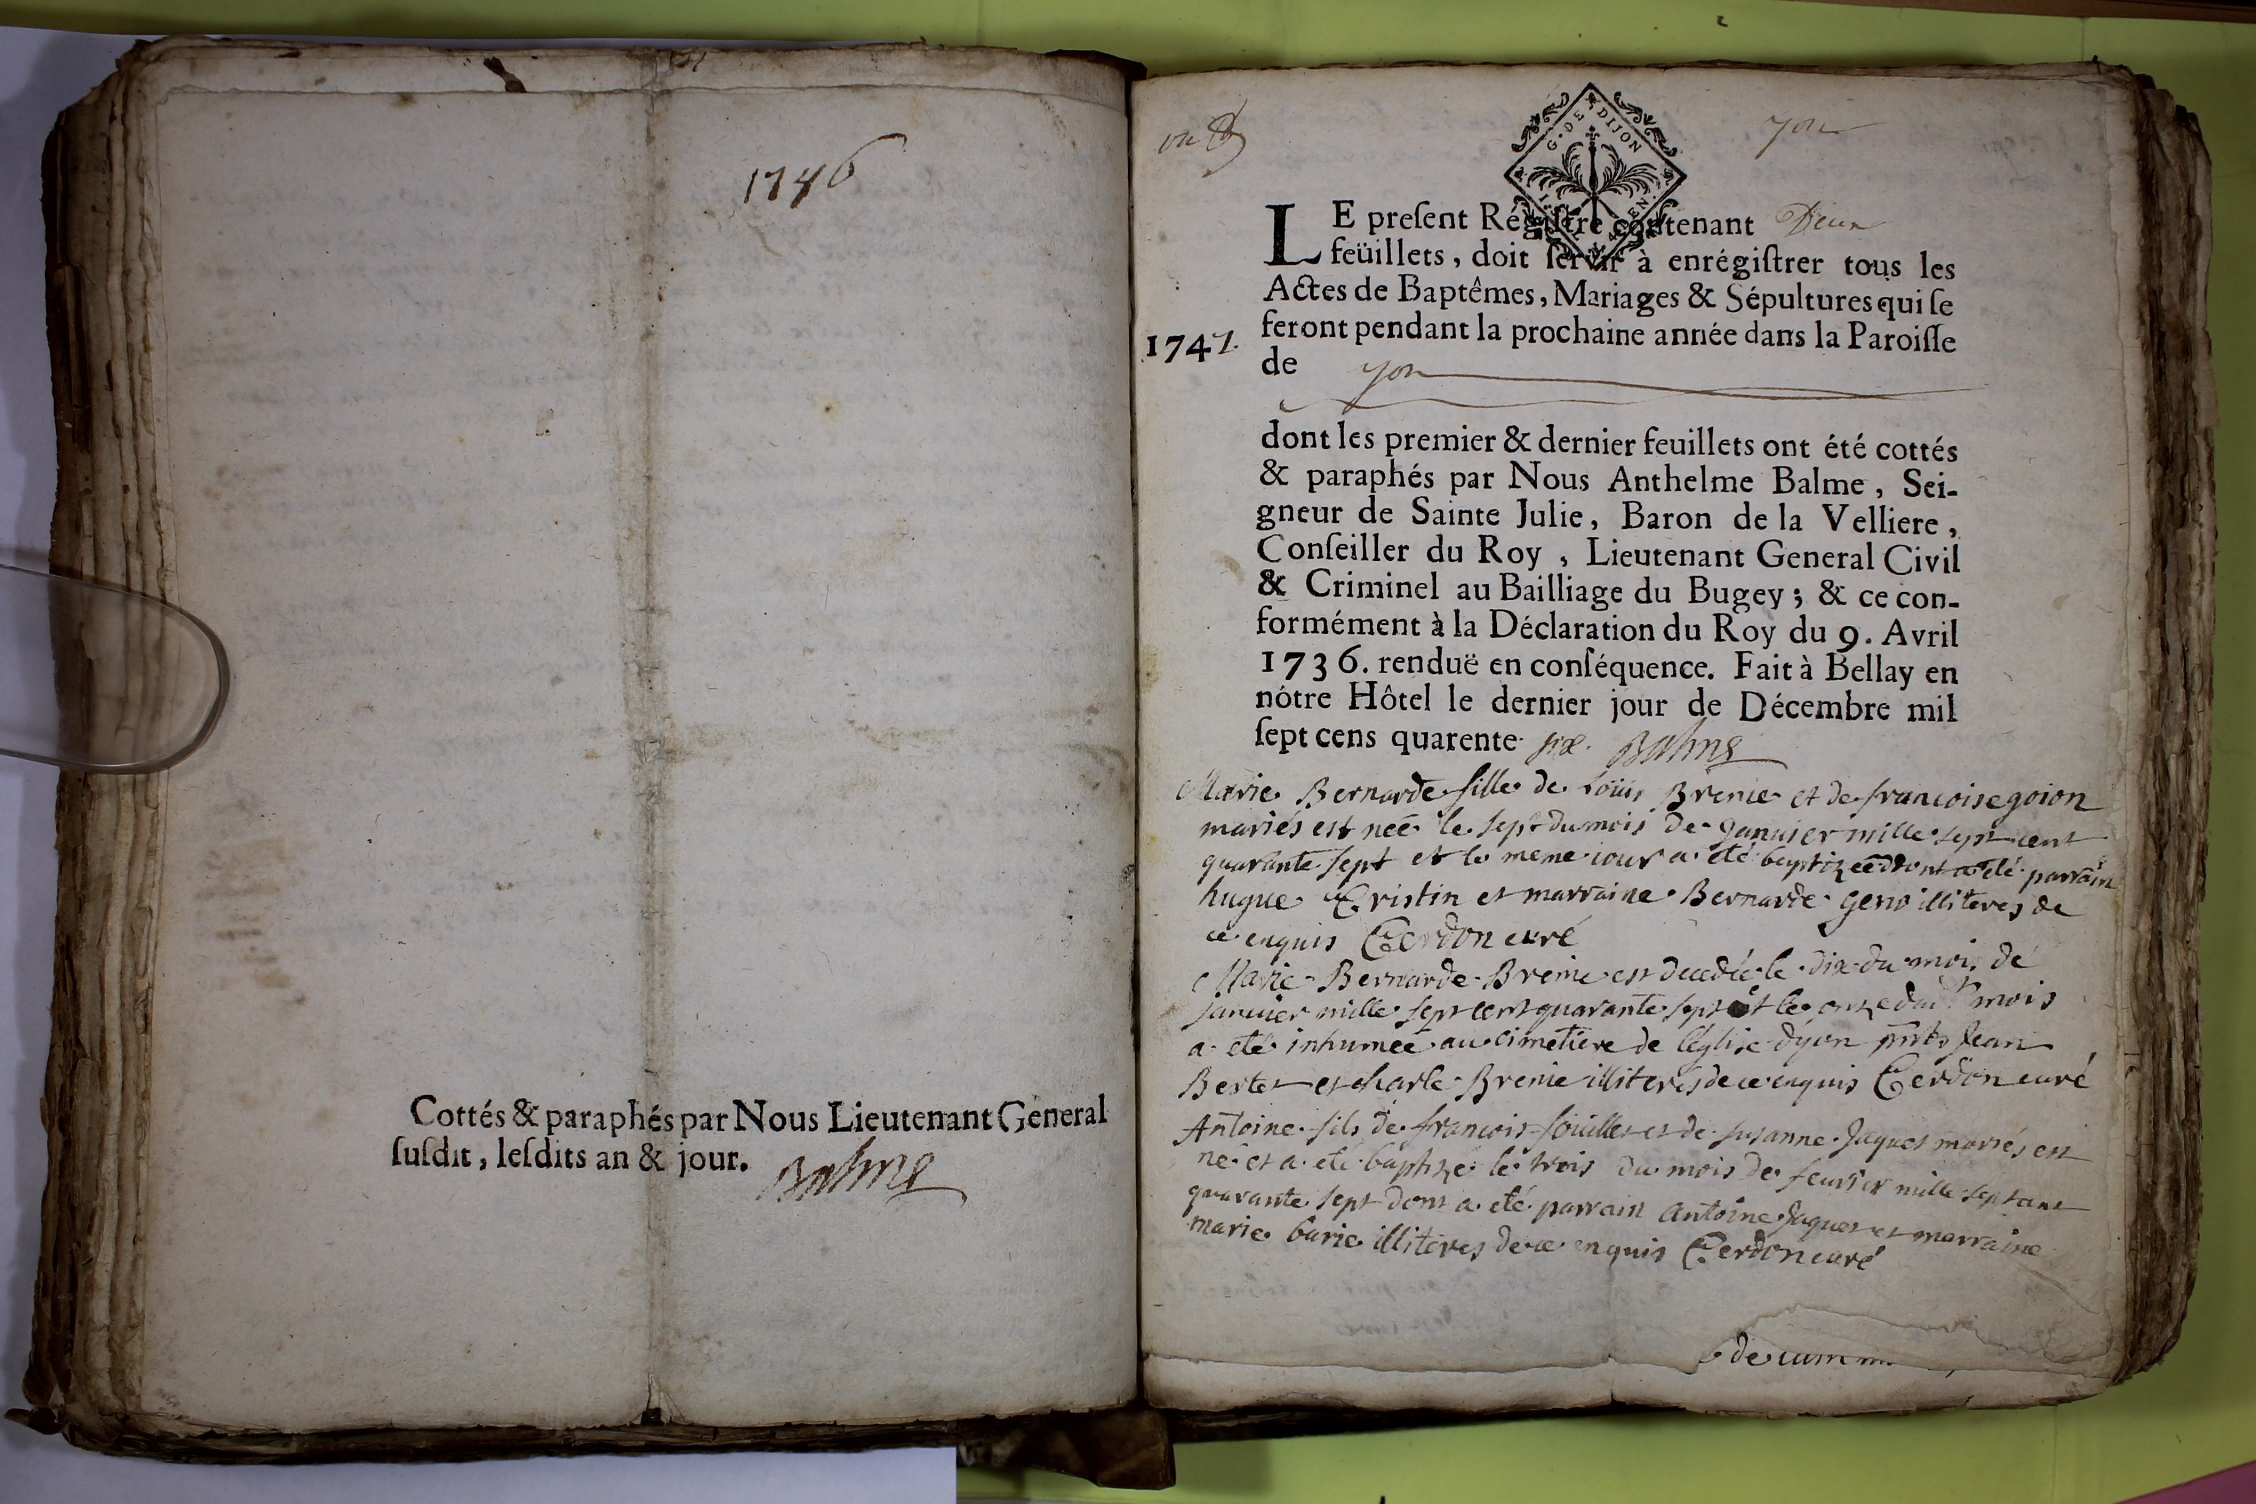 1746
Cottés & paraphés par Nous Lieutenant General
ſuſdit, leſdits an & jour. Balme
yon
G. DE DIJON
LE preſent Régiſtre contenant Deux
feüillets, doit ſervir à enrégiſtrer tous les
Actes de Baptêmes, Mariages & Sépultures qui ſe
feront pendant la prochaine année dans la Paroiſſe
1747.
de yon
dont les premier & dernier feuillets ont été cottés
& paraphés par Nous Anthelme Balme, Sei-
gneur de Sainte Julie, Baron de la Velliere,
Conſeiller du Roy, Lieutenant General Civil
& Criminel au Bailliage du Bugey; & ce con-
formément à la Déclaration du Roy du 9. Avril
1736. renduë en conſéquence. Fait à Bellay en
nótre Hôtel le dernier jour de Décembre mil
ſept cens quarente six. Balme
Marie Bernarde fille de Loüis Brenie et de francoise goion
mariés est neé le sept du mois de Janvier mille sept cent
quarante sept et le meme iour a eté baptizeé dont a eté parrain
hugue Cristin et marraine Bernarde geno illiteres de
ce enquis Cerdon curé
Marie Bernarde Brenie est decedée le dix du mois de
Janvier mille sept cent quarante sept et le onze dud^t mois
a eté inhumeé au cimetiere de l'église dyon pnts Jean
Bertet et charle Brenie illiterés de ce enquis Cerdon curé
Antoine fils de francois foüillet et de susanne Jaquet mariés est
ne et a eté baptizé le trois du mois de feurier mille sept cent
quarante sept dont a eté parrain Antoine Jaquet et marraine
marie barie illiteres de ce enquis Cerdon curé